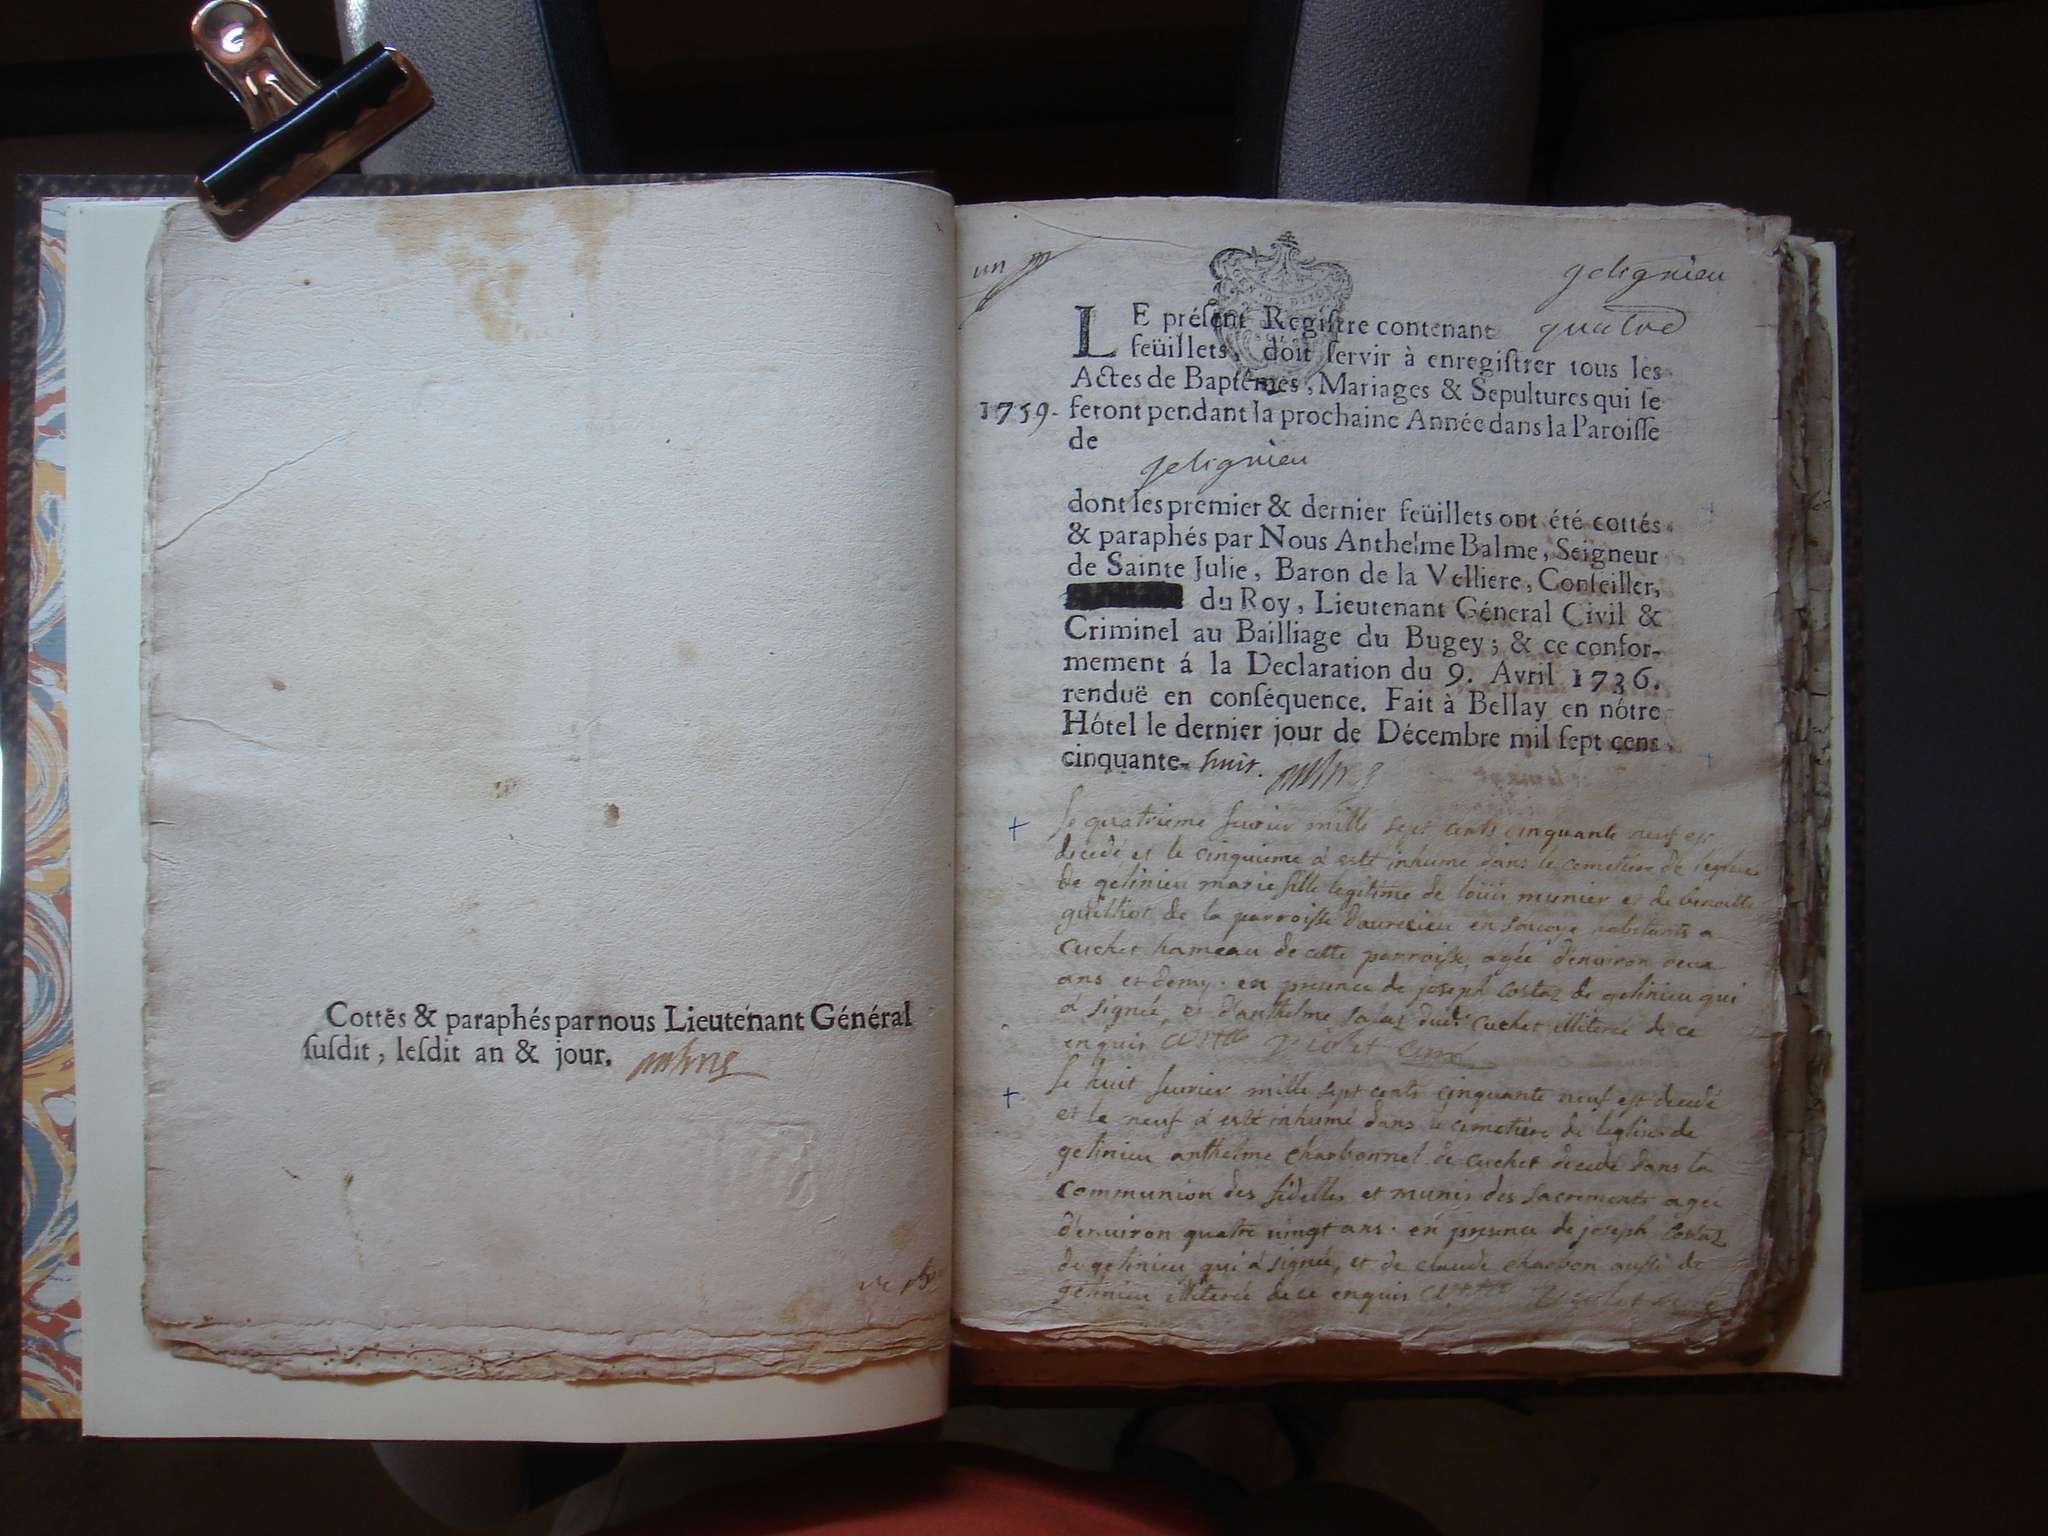 Cottés & paraphés par nous Lieutenant Général
ſuſdit, leſdit an & jour.
un
gelignieu
LE préſent Regiſtre contenant quatre
feüillets, doit ſervir à enregiſtrer tous les
Actes de Baptêmes, Mariages & Sepultures qui ſe
1759. feront pendant la prochaine Année dans la Paroiſſe
de
gelignieu
dont les premier & dernier feüillets ont été cottés
& paraphés par Nous Anthelme Balme, Seigneur
de Sainte Julie, Baron de la Velliere, Conſeiller,
du Roy, Lieutenant Géneral Civil &
Criminel au Bailliage du Bugey; & ce confor-
mement á la Declaration du 9. Avril 1736.
renduë en conſéquence. Fait à Bellay en nôtre
Hôtel le dernier jour de Décembre mil ſept cens
cinquante- huit.
le quatrieme fevrier mille sept cents cinquante neuf est
decedé et le cinquieme à esté inhumé dans le cemetiere de l'eglise
de gelinieu marie fille legitime de loüis munier et de benoitte
guilliot de la parroisse en savoye habitants a
cuchet hameau de cette parroisse, agée d'environ deux
ans et demy. en presence de joseph costaz de gelinieu qui
à signée, et d'anthelme dudt cuchet illiteré de ce
enquis curé
le huit fevrier mille sept cents cinquante neuf est decedé
et le neuf à esté inhumé dans le cemetiere de l'eglise de
gelinieu anthelme charbonnel de cuchet decedé dans la
communion des fidelles et munis des sacrements agée
d'environ quatre vingt ans. en presence de joseph costaz
de gelinieu qui à signée, et de claude charbon aussi de
gelinieu illiteré de ce enquis